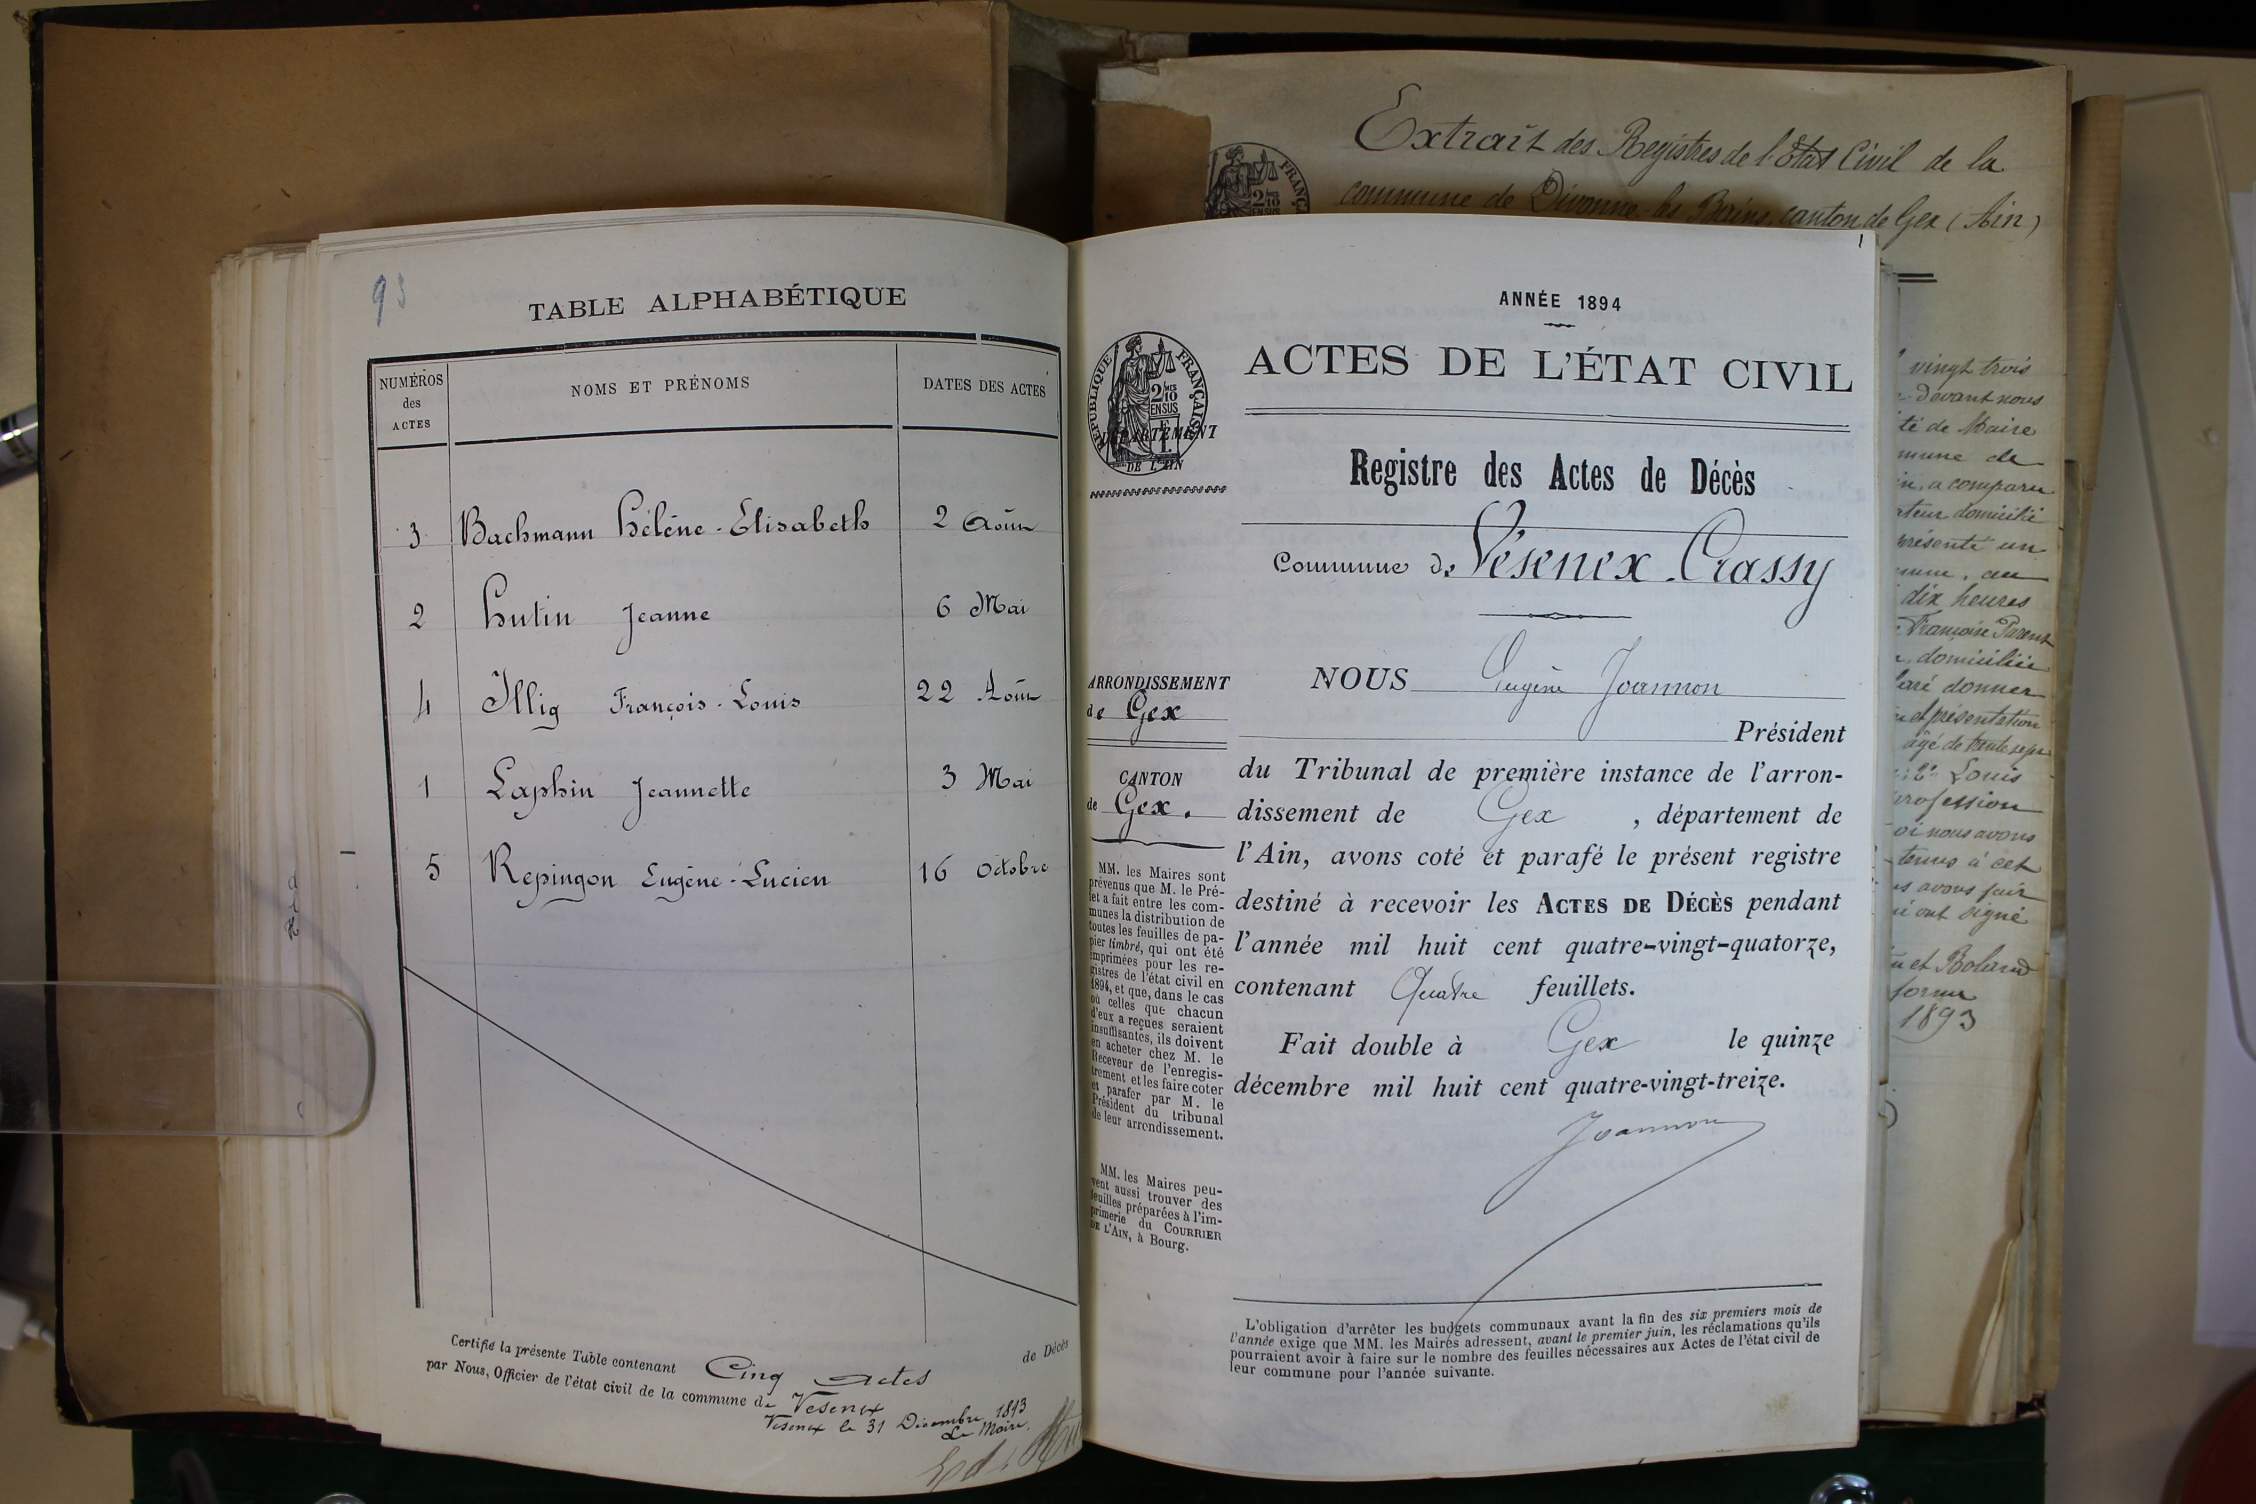 93
TABLE ALPHABÉTIQUE
NUMÉROS des ACTES
NOMS ET PRÉNOMS
DATES DES ACTES
3 Bachmann Hélène-Elisabeth 2 Août
2 Hutin Jeanne 6 Mai
4 Illig François-Louis 22 Août
1 Laphin Jeannette 3 Mai
5 Repingon Eugène-Lucien 16 Octobre
Certifié la présente Table contenant Cinq actes de Décès
par Nous, Officier de l'état civil de la commune de Vesenex
Vesenex le 31 Décembre 1893
Le Maire.
1
ANNÉE 1894
ACTES DE L'ÉTAT CIVIL
RÉPUBLIQUE FRANÇAISE
2/10 MES
EN SUS
DÉPARTEMENT
DE L'AIN
Registre des Actes de Décès
Commune de Vésenex-Crassy
ARRONDISSEMENT
de Gex
CANTON
de Gex.
MM. les Maires sont
prévenus que M. le Pré-
fet a fait entre les com-
munes la distribution de
toutes les feuilles de pa-
pier timbré, qui ont été
imprimées pour les re-
gistres de l'état civil en
1894, et que, dans le cas
où celles que chacun
d'eux a reçues seraient
insuffisantes, ils doivent
en acheter chez M. le
Receveur de l'enregis-
trement et les faire coter
et parafer par M. le
Président du tribunal
de leur arrondissement.
MM. les Maires peu-
vent aussi trouver des
feuilles préparées à l'im-
primerie du COURRIER
DE L'AIN, à Bourg.
NOUS Eugène Joannon
Président
du Tribunal de première instance de l'arron-
dissement de Gex , département de
l'Ain, avons coté et parafé le présent registre
destiné à recevoir les ACTES DE DÉCÈS pendant
l'année mil huit cent quatre-vingt-quatorze,
contenant Quatre feuillets.
Fait double à Gex le quinze
décembre mil huit cent quatre-vingt-treize.
Joannon
L'obligation d'arrêter les budgets communaux avant la fin des six premiers mois de
l'année exige que MM. les Maires adressent, avant le premier juin, les réclamations qu'ils
pourraient avoir à faire sur le nombre des feuilles nécessaires aux Actes de l'état civil de
leur commune pour l'année suivante.
Extrait des Registres de l'Etat Civil de la
commune de Divonne-les-Bains, canton de Gex (Ain)
FRANÇ
2/10 MES
EN SUS
vingt trois
devant nous
té de Maire
mune de
a comparu
ateur domicilié
présenté un
au
dix heures
Françoise Parent
domiciliée
laré donner
et présentation
âgé de trente sept
Louis
profession
oi nous avons
tenus à cet
s avons fait
ont signé
et Boland
forme
1893